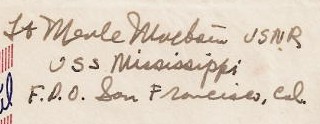 Lt Merle Macbain USNR
USS Mississippi
F.P.O. San Francisco, Cal.